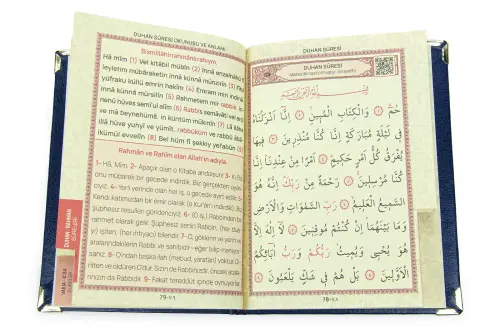 DUHAN SÛRESİ OKUNUŞU VE ANLAMI
Bismillâhirrahmânirrahîym.
Hâ mîm (1) Vel kitâbil mübîn (2) İnnâ enzelnâhü fî
leyletim mübâraketin innâ künnâ münzirîn (3) Fîhâ
yüfraku küllü emrin hakîm (4) Emram min ındinâ
innâ künnâ mürsilîn (5) Rahmetem mir rabbik, in
nehû hüves semî'ul alîm (6) Rabbis semâvâti vel ardı
ve mâ beynehümâ, in küntüm mûkınîn (7) Lâ ilâhe
illâ hüve yuhyî ve yümît, rabbüküm ve rabbü âbâ
ikümül evvelîn (8) Bel hüm fî şekkiy yel'abûn (9)
Rahmân ve Rahîm olan Allah'ın adıyla.
1- Hâ, Mîm. 2- Apaçık olan o Kitaba andolsun! 3- Ki
onu mübarek bir gecede indirdik. Biz gerçekten uyarı
cıyız. 4- Yani yerinde olan her iş, o gecede ayırt edilir. 5-
Kendi katımızdan bir emir olarak (o Kur'an'ı indirdik).
Şüphesiz resulleri göndericiyiz. 6- (O iş,) Rabbinden bir
rahmet olarak gelir. Şüphesiz senin Rabbin, (her şe
yi) işiten, (her ihtiyacı) bilendir. 7- O, göklerin ve yerin ve
aralarındakilerin Rabbi ve sahibidir- eğer bilip inanan
sanız. 8- O'ndan başka ilah (mabud, yaratan) yoktur. O
diriltir ve öldürür. O'dur Sizin de Rabbinizdir, önceki atala
rınızın da Rabbidir. 9- Fakat tereddüt içinde oynuyorlar.
DUHAN SÛRESİ
79-٧٩
DUHAN SÛRESİ
DUHÂN SÛRESİ
حٰمٓ ﴿١﴾ وَالْكِتَابِ الْمُبٖينِ ﴿٢﴾ اِنَّٓا اَنْزَلْنَاهُ
فٖي لَيْلَةٍ مُبَارَكَةٍ اِنَّا كُنَّا مُنْذِرٖينَ ﴿٣﴾ فٖيهَا
يُفْرَقُ كُلُّ اَمْرٍ حَكٖيمٍ ﴿٤﴾ اَمْرًا مِنْ عِنْدِنَا اِنَّا
كُنَّا مُرْسِلٖينَ ﴿٥﴾ رَحْمَةً مِنْ رَبِّكَ اِنَّهُ هُوَ
السَّمٖيعُ الْعَلٖيمُ ﴿٦﴾ رَبِّ السَّمٰوَاتِ وَالْاَرْضِ
وَمَا بَيْنَهُمَا اِنْ كُنْتُمْ مُوقِنٖينَ ﴿٧﴾ لَٓا اِلٰهَ اِلَّا
هُوَ يُحْيٖ وَيُمٖيتُ رَبُّكُمْ وَرَبُّ اٰبَٓائِكُمُ
الْاَوَّلٖينَ ﴿٨﴾ بَلْ هُمْ فٖي شَكٍّ يَلْعَبُونَ ﴿٩﴾
78-٧٨